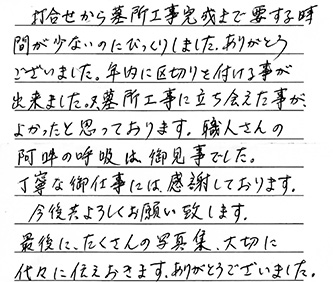 打合せから墓所工事完成まで要する時
間が少ないのにびっくりしました。ありがとう
ございました。年内に区切りを付ける事が
出来ました。又墓所工事に立ち会えた事が、
よかったと思っております。職人さんの
阿吽の呼吸は御見事でした。
丁寧な御仕事には、感謝しております。
今後共よろしくお願い致します。
最後に、たくさんの写真集、大切に
代々に伝えおきます。ありがとうございました。